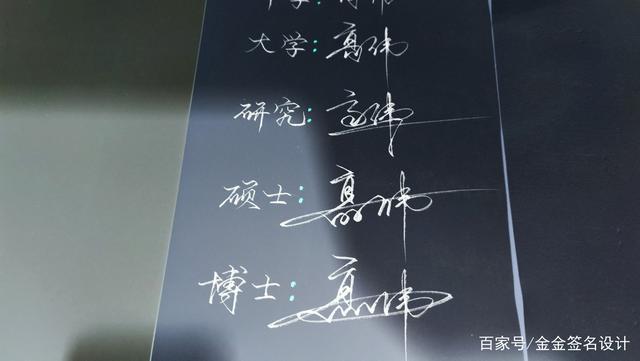 大学：高伟
研究：高伟
硕士：高伟
博士：高伟
百家号/金金签名设计